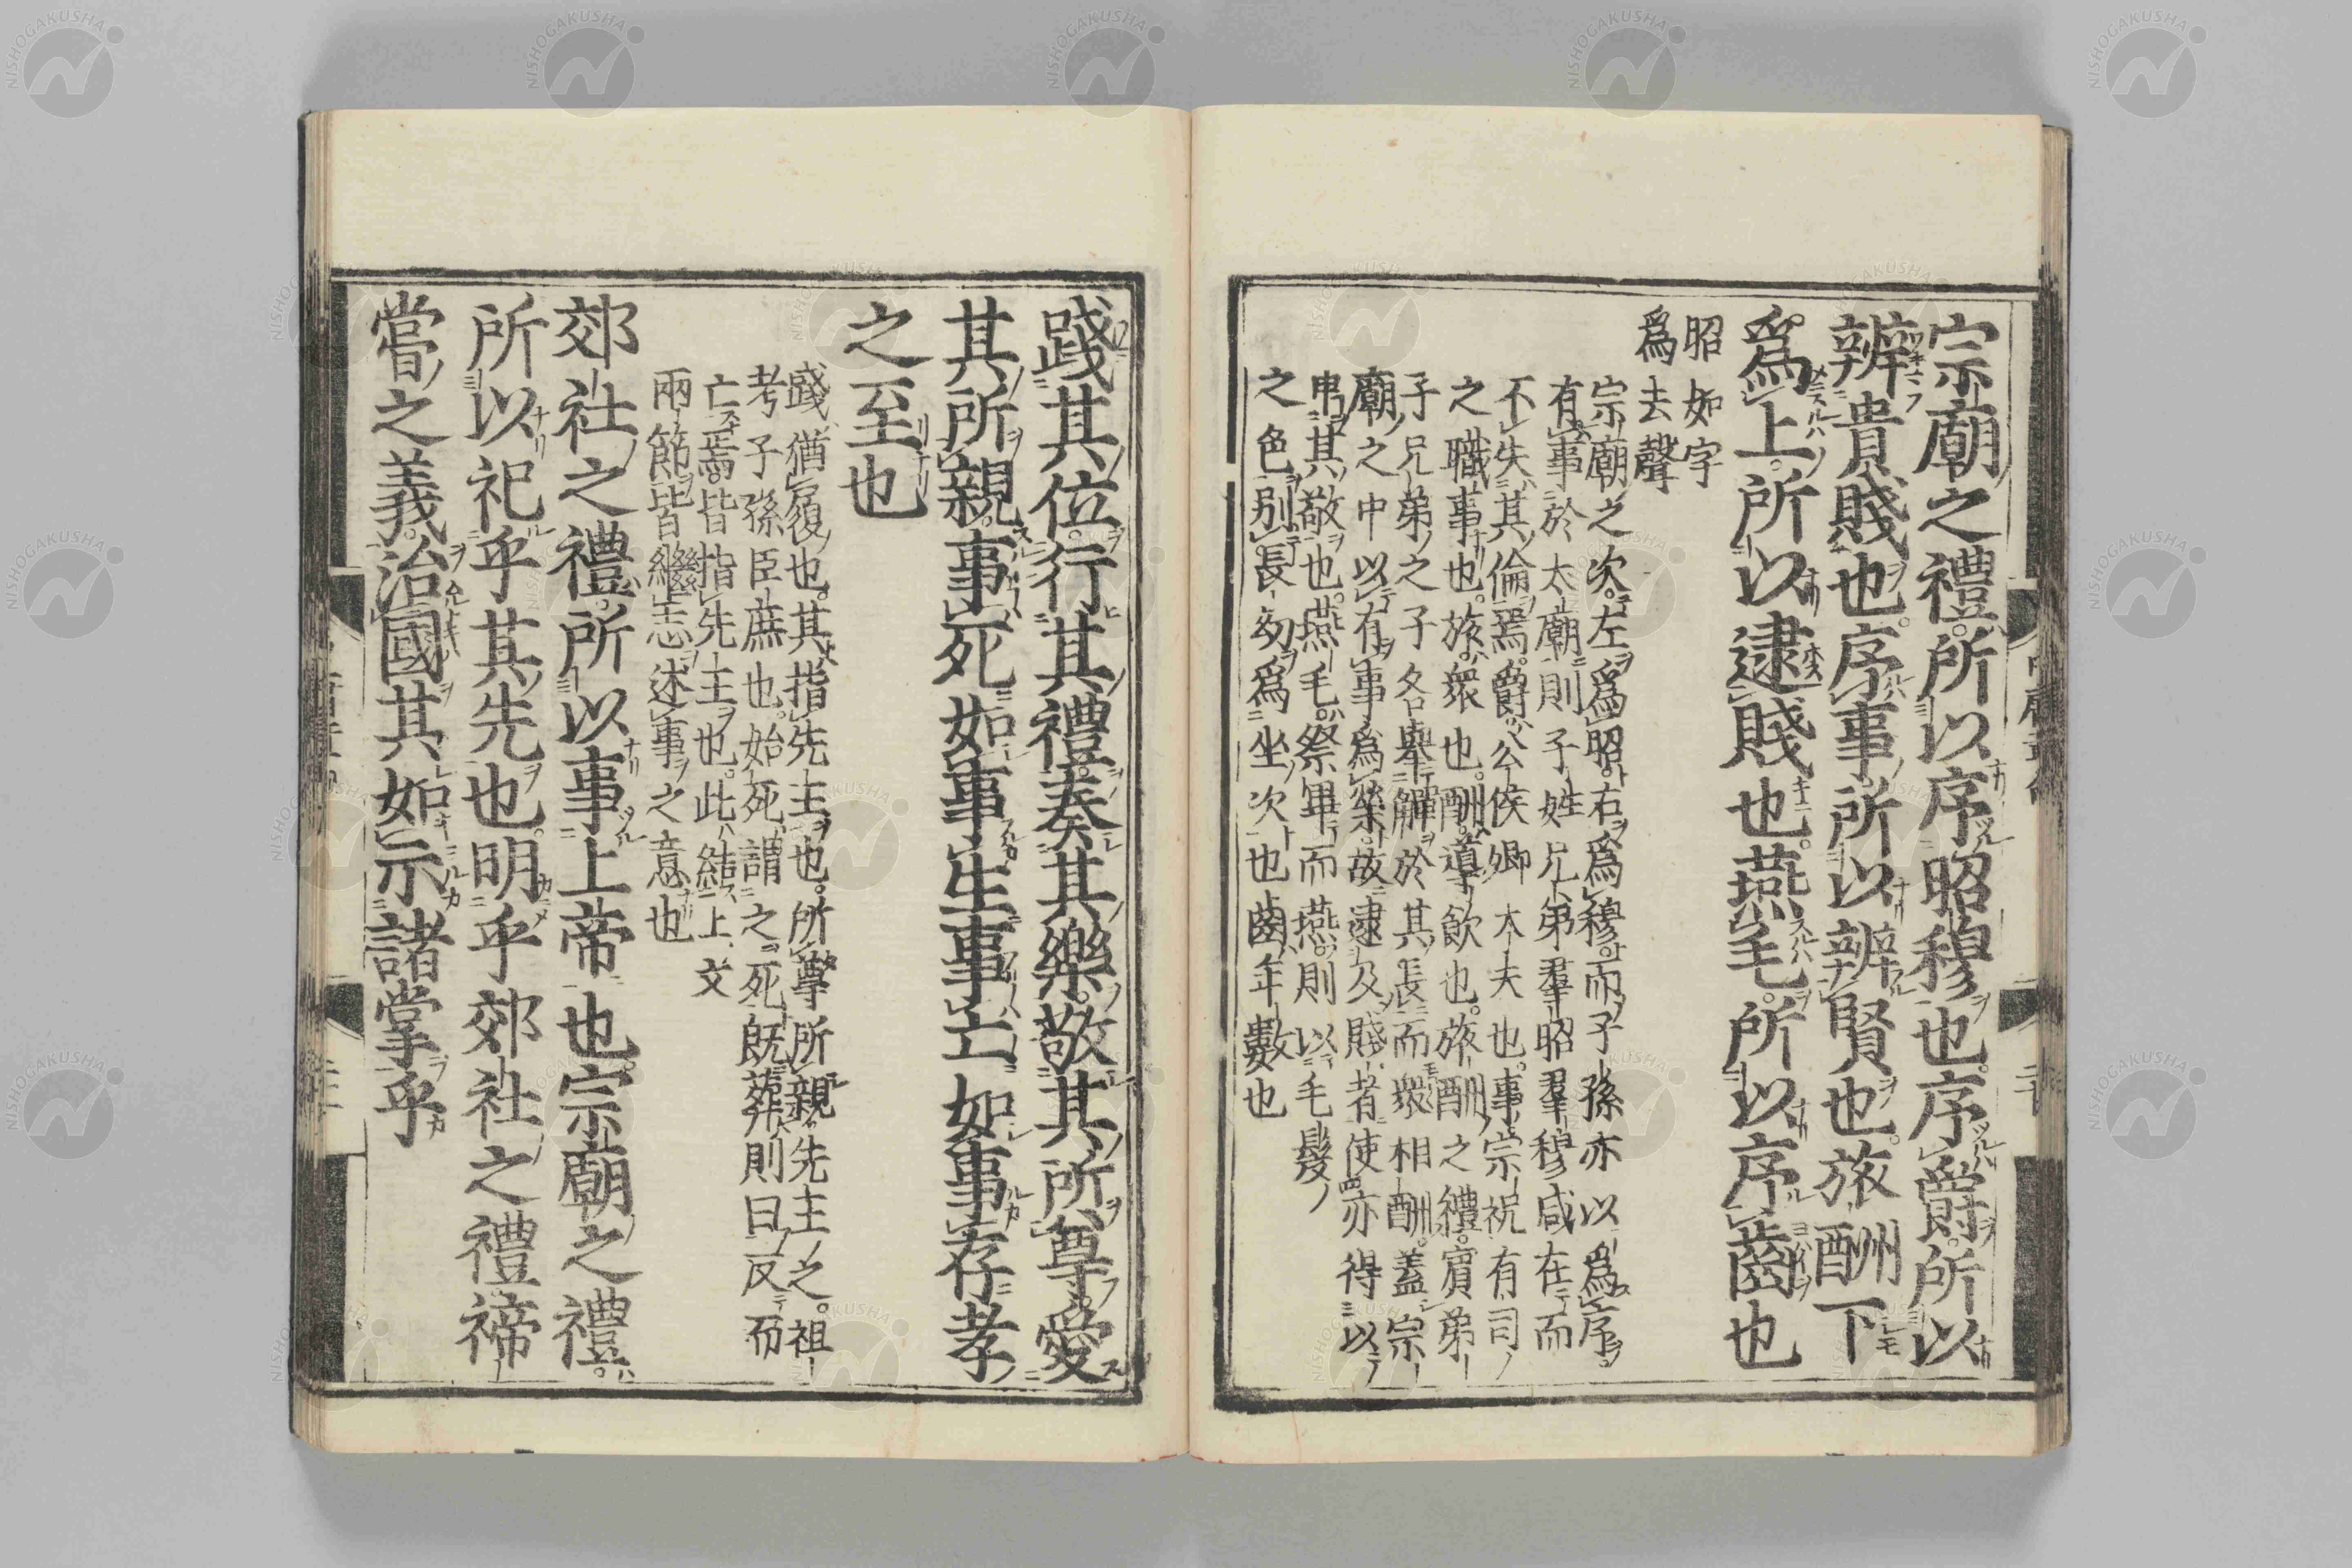 宗廟之禮所以序昭穆也序爵所以
辨貴賤也序事所以辨賢也旅酬下
爲上所以逮賤也燕毛所以序齒也
昭如字
爲去聲
宗廟之次左爲昭右爲穆而子孫亦以爲序
有事於太廟則子姓兄弟羣昭羣穆咸在而
不失其倫焉爵公侯卿大夫也事宗祝有司
之職事也旅衆也酬導飲也旅酬之禮賓弟
子兄弟之子各舉觶於其長而衆相酬蓋宗
廟之中以有事爲榮故逮及賤者使亦得以
申其敬也燕毛祭畢而燕則以毛髮
之色別長幼爲坐次也齒年數也
踐其位行其禮奏其樂敬其所尊愛
其所親事死如事生事亡如事存孝
之至也
踐猶履也其指先王也所尊所親先王之祖
考子孫臣庶也始死謂之死既葬則曰反而
亡焉皆指先王也此結上文
兩節皆繼志述事之意也
郊社之禮所以事上帝也宗廟之禮
所以祀乎其先也明乎郊社之禮禘
嘗之義治國其如示諸掌乎
NISHOGAKUSHA